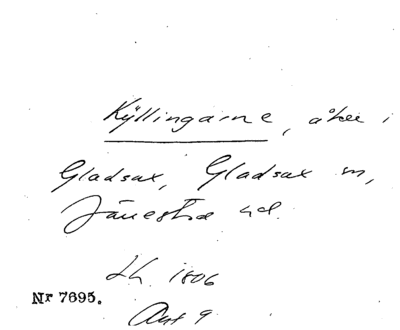 Kÿllingarne, åker i
Gladsax, Gladsax sn,
Järrestad hd.
Lh. 1806
Nr 7695.
Akt 9